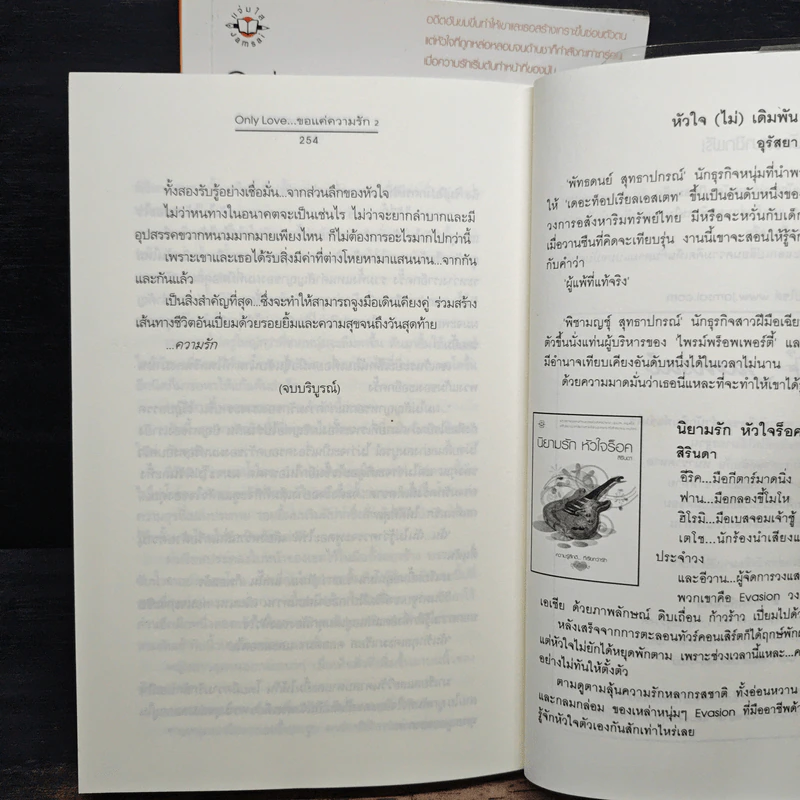 แจ่มใส
Jamsai
อดีตอันขมขื่นทำให้เขาและเธอสร้างเกราะขึ้นซ่อนตัวตน
เมื่อความรักเริ่มต้นทำหน้าที่ของมัน
Only Love...ขอแค่ความรัก 2
254
ทั้งสองรับรู้อย่างเชื่อมั่น...จากส่วนลึกของหัวใจ
ไม่ว่าหนทางในอนาคตจะเป็นเช่นไร ไม่ว่าจะยากลำบากและมี
อุปสรรคขวากหนามมากมายเพียงไหน ก็ไม่ต้องการอะไรมากไปกว่านี้
เพราะเขาและเธอได้รับสิ่งมีค่าที่ต่างโหยหามาแสนนาน...จากกัน
และกันแล้ว
เป็นสิ่งสำคัญที่สุด...ซึ่งจะทำให้สามารถจูงมือเดินเคียงคู่ ร่วมสร้าง
เส้นทางชีวิตอันเปี่ยมด้วยรอยยิ้มและความสุขจนถึงวันสุดท้าย
...ความรัก
(จบบริบูรณ์)
หัวใจ (ไม่) เดิมพัน
อุรัสยา
'พัทธดนย์ สุทธาปกรณ์' นักธุรกิจหนุ่มที่นำพา
ให้ 'เดอะท็อปเรียลเอสเตท' ขึ้นเป็นอันดับหนึ่งของ
วงการอสังหาริมทรัพย์ไทย มีหรือจะหวั่นกับเด็ก
เมื่อวานซืนที่คิดจะเทียบรุ่น งานนี้เขาจะสอนให้รู้จัก
กับคำว่า
'ผู้แพ้ที่แท้จริง'
'พิชามญชุ์ สุทธาปกรณ์' นักธุรกิจสาวฝีมือเฉียบ
ตัวขึ้นนั่งแท่นผู้บริหารของ 'ไพรม์พร็อพเพอร์ตี้' และ
มีอำนาจเทียบเคียงอันดับหนึ่งได้ในเวลาไม่นาน
ด้วยความมาดมั่นว่าเธอนี่แหละที่จะทำให้เขาได้รู้
นิยามรัก หัวใจร็อค
สิรินดา
นิยามรัก หัวใจร็อค
สิรินดา
อีริค...มือกีตาร์มาดนิ่ง
ฟาน...มือกลองขี้โมโห
ฮิโรมิ...มือเบสจอมเจ้าชู้
เตโช...นักร้องนำเสียงแ
ประจำวง
และอีวาน...ผู้จัดการวงแส
พวกเขาคือ Evasion วง
เอเชีย ด้วยภาพลักษณ์ ดิบเถื่อน ก้าวร้าว เปี่ยมไปด้ว
หลังเสร็จจากการตะลอนทัวร์คอนเสิร์ตก็ได้ฤกษ์พัก
แต่หัวใจไม่ยักได้หยุดพักตาม เพราะช่วงเวลานี้แหละ...ค
อย่างไม่ทันให้ตั้งตัว
ตามดูตามลุ้นความรักหลากรสชาติ ทั้งอ่อนหวาน
และกลมกล่อม ของเหล่าหนุ่มๆ Evasion ที่มืออาชีพด้า
รู้จักหัวใจตัวเองกันสักเท่าไหร่เลย